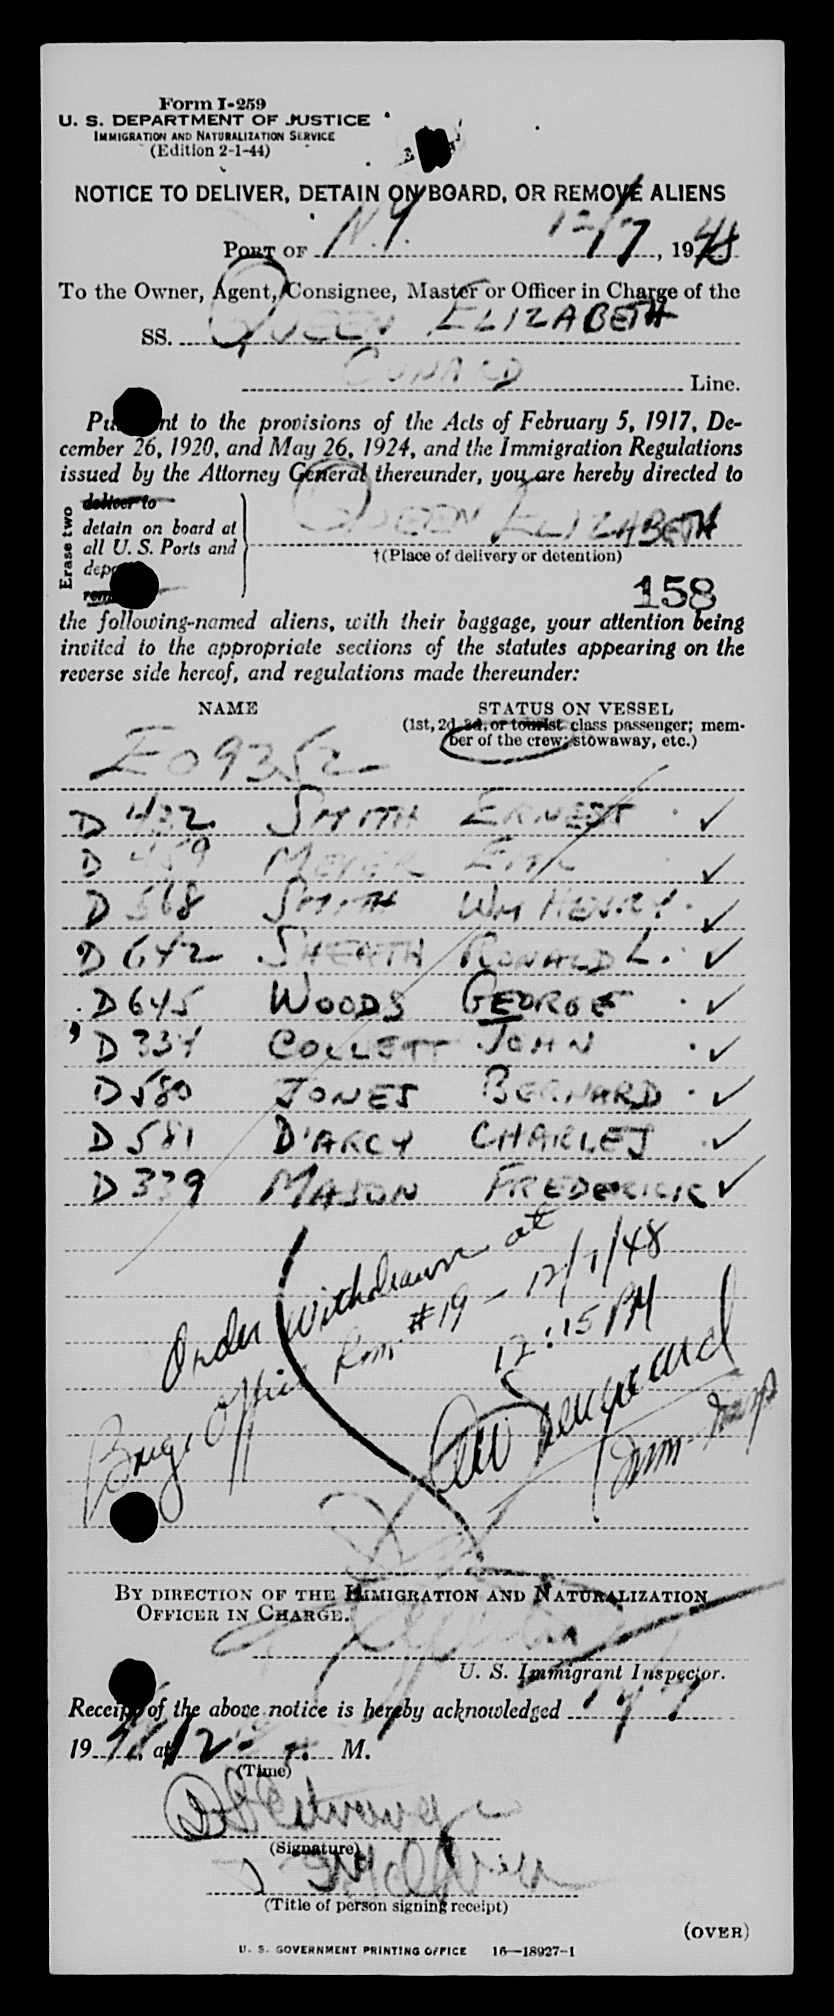 Form I-259
U. S. DEPARTMENT OF JUSTICE
IMMIGRATION AND NATURALIZATION SERVICE
(Edition 2-1-44)
NOTICE TO DELIVER, DETAIN ON BOARD, OR REMOVE ALIENS
PORT OF N.Y. 12/7, 1948
To the Owner, Agent, Consignee, Master or Officer in Charge of the
SS. QUEEN ELIZABETH
CUNARD Line.
nt to the provisions of the Acts of February 5, 1917, De-
cember 26, 1920, and May 26, 1924, and the Immigration Regulations
issued by the Attorney General thereunder, you are hereby directed to
Erase two
deliver to
detain on board at
all U. S. Ports and
QUEEN ELIZABETH
†(Place of delivery or detention)
158
the following-named aliens, with their baggage, your attention being
invited to the appropriate sections of the statutes appearing on the
reverse side hereof, and regulations made thereunder:
NAME STATUS ON VESSEL
(1st, 2d, 3d, or tourist class passenger; mem-
ber of the crew; stowaway, etc.)
E09352
D 432 SMITH ERNEST ✓
D 459 MEYER ✓
D 568 SMITH WM HENRY ✓
D 642 SHEATH RONALD L. ✓
D 645 WOODS GEORGE ✓
D 337 COLLETT JOHN ✓
D 580 JONES BERNARD ✓
D 581 D'ARCY CHARLES ✓
D 339 MASON FREDERICK ✓
Order Withdrawn at
Barge Office Rm. #19 - 12/7/48
12:15 PM
BY DIRECTION OF THE IMMIGRATION AND NATURALIZATION
OFFICER IN CHARGE.
U. S. Immigrant Inspector.
Receipt of the above notice is hereby acknowledged
19 at 12 M.
(Time)
(Signature)
(Title of person signing receipt)
(OVER)
U. S. GOVERNMENT PRINTING OFFICE 16—18927-1